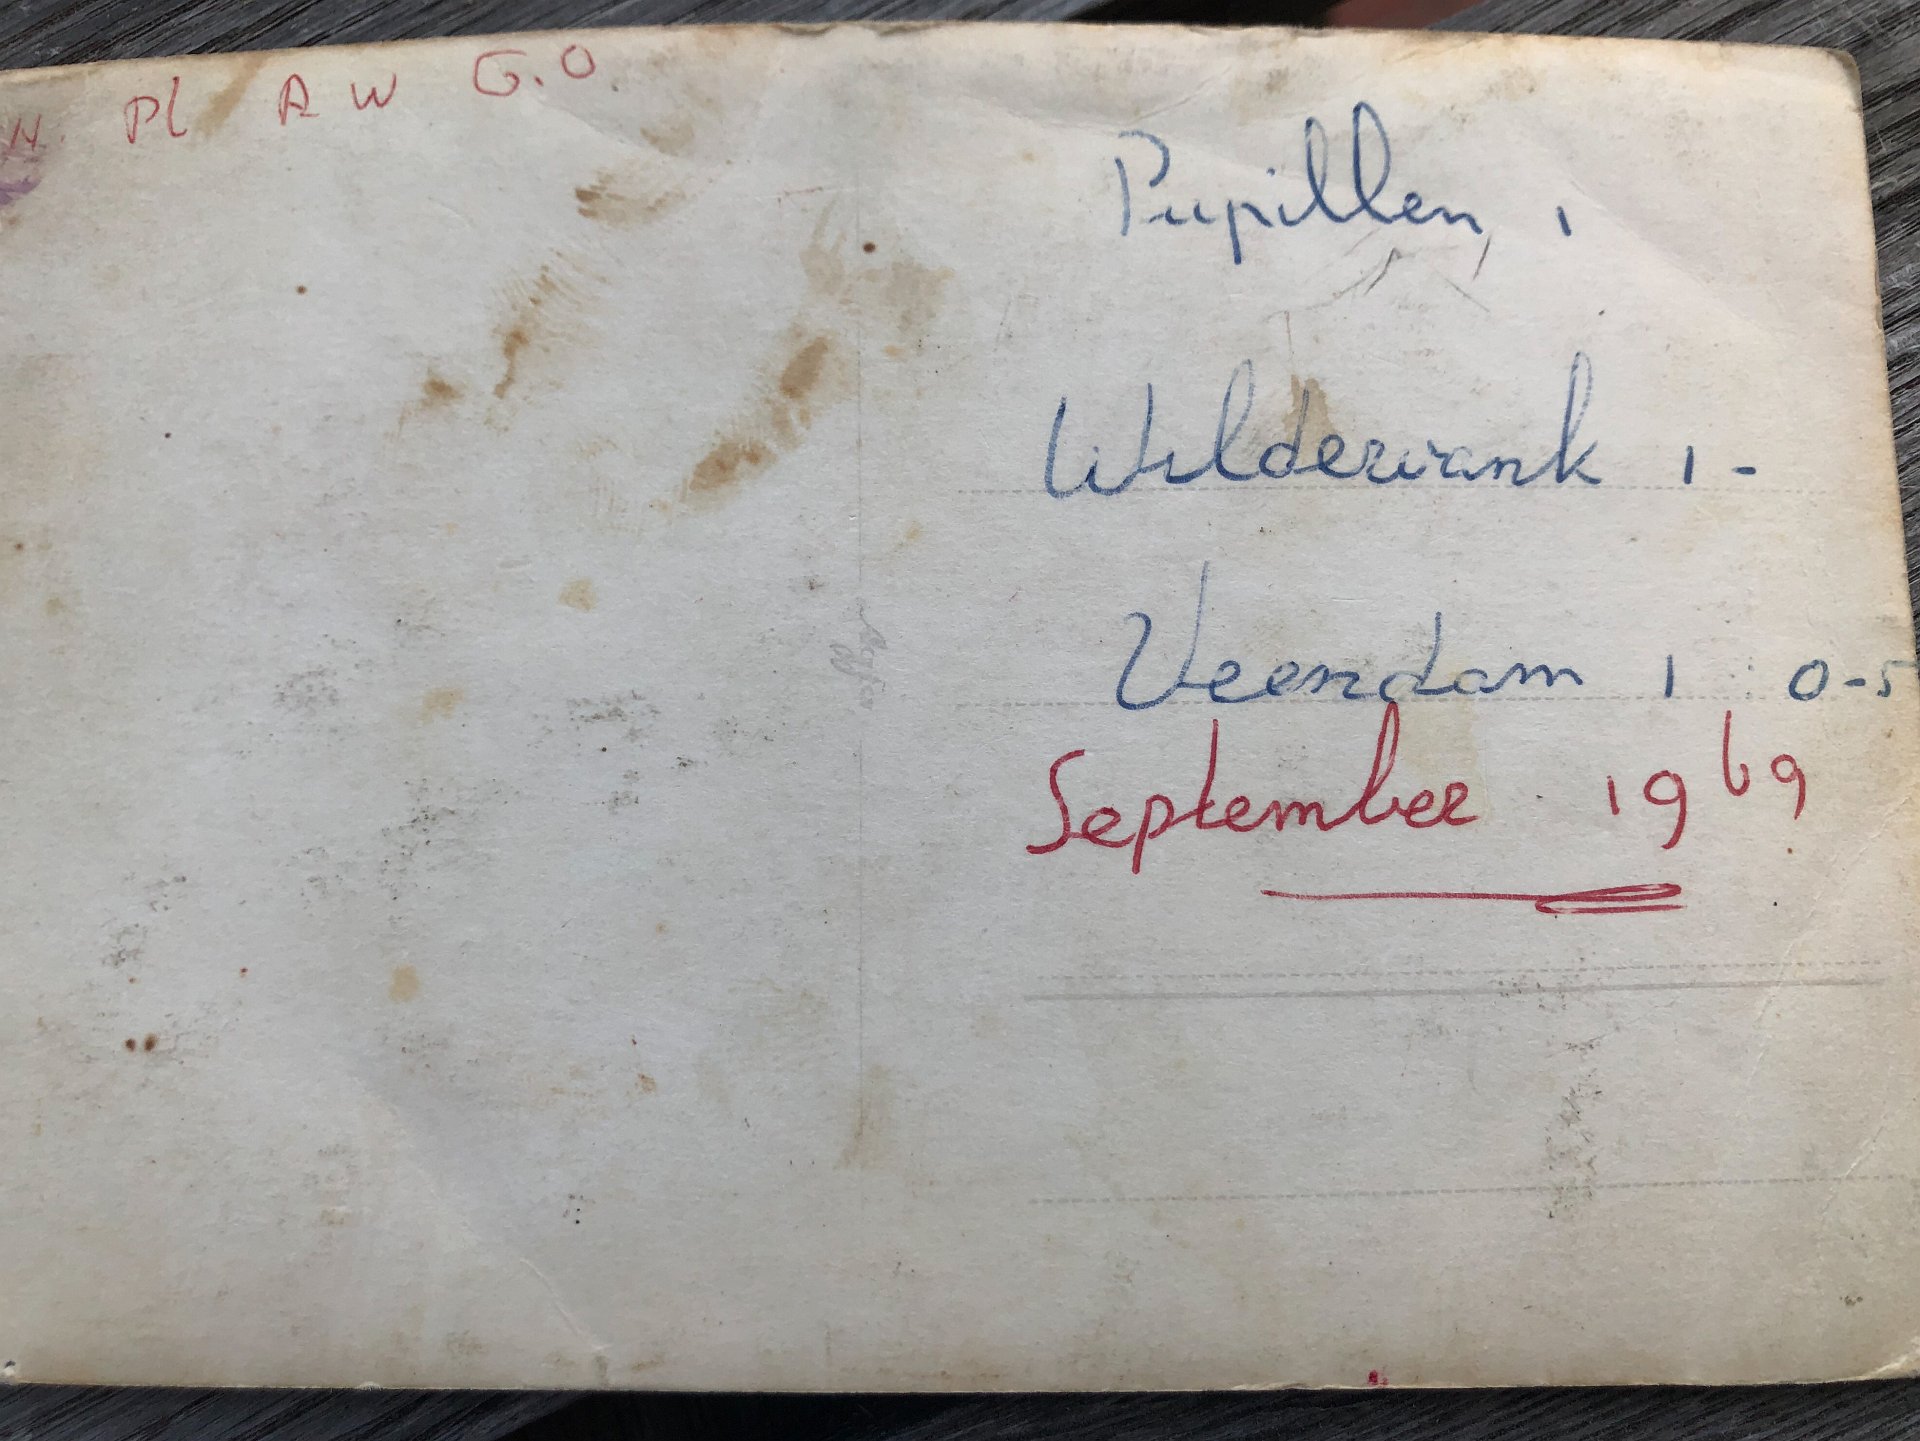 N. Pl R W G.O
Pupillen 1
Wildervank 1 -
Veendam 1 : 0-5
September 1969